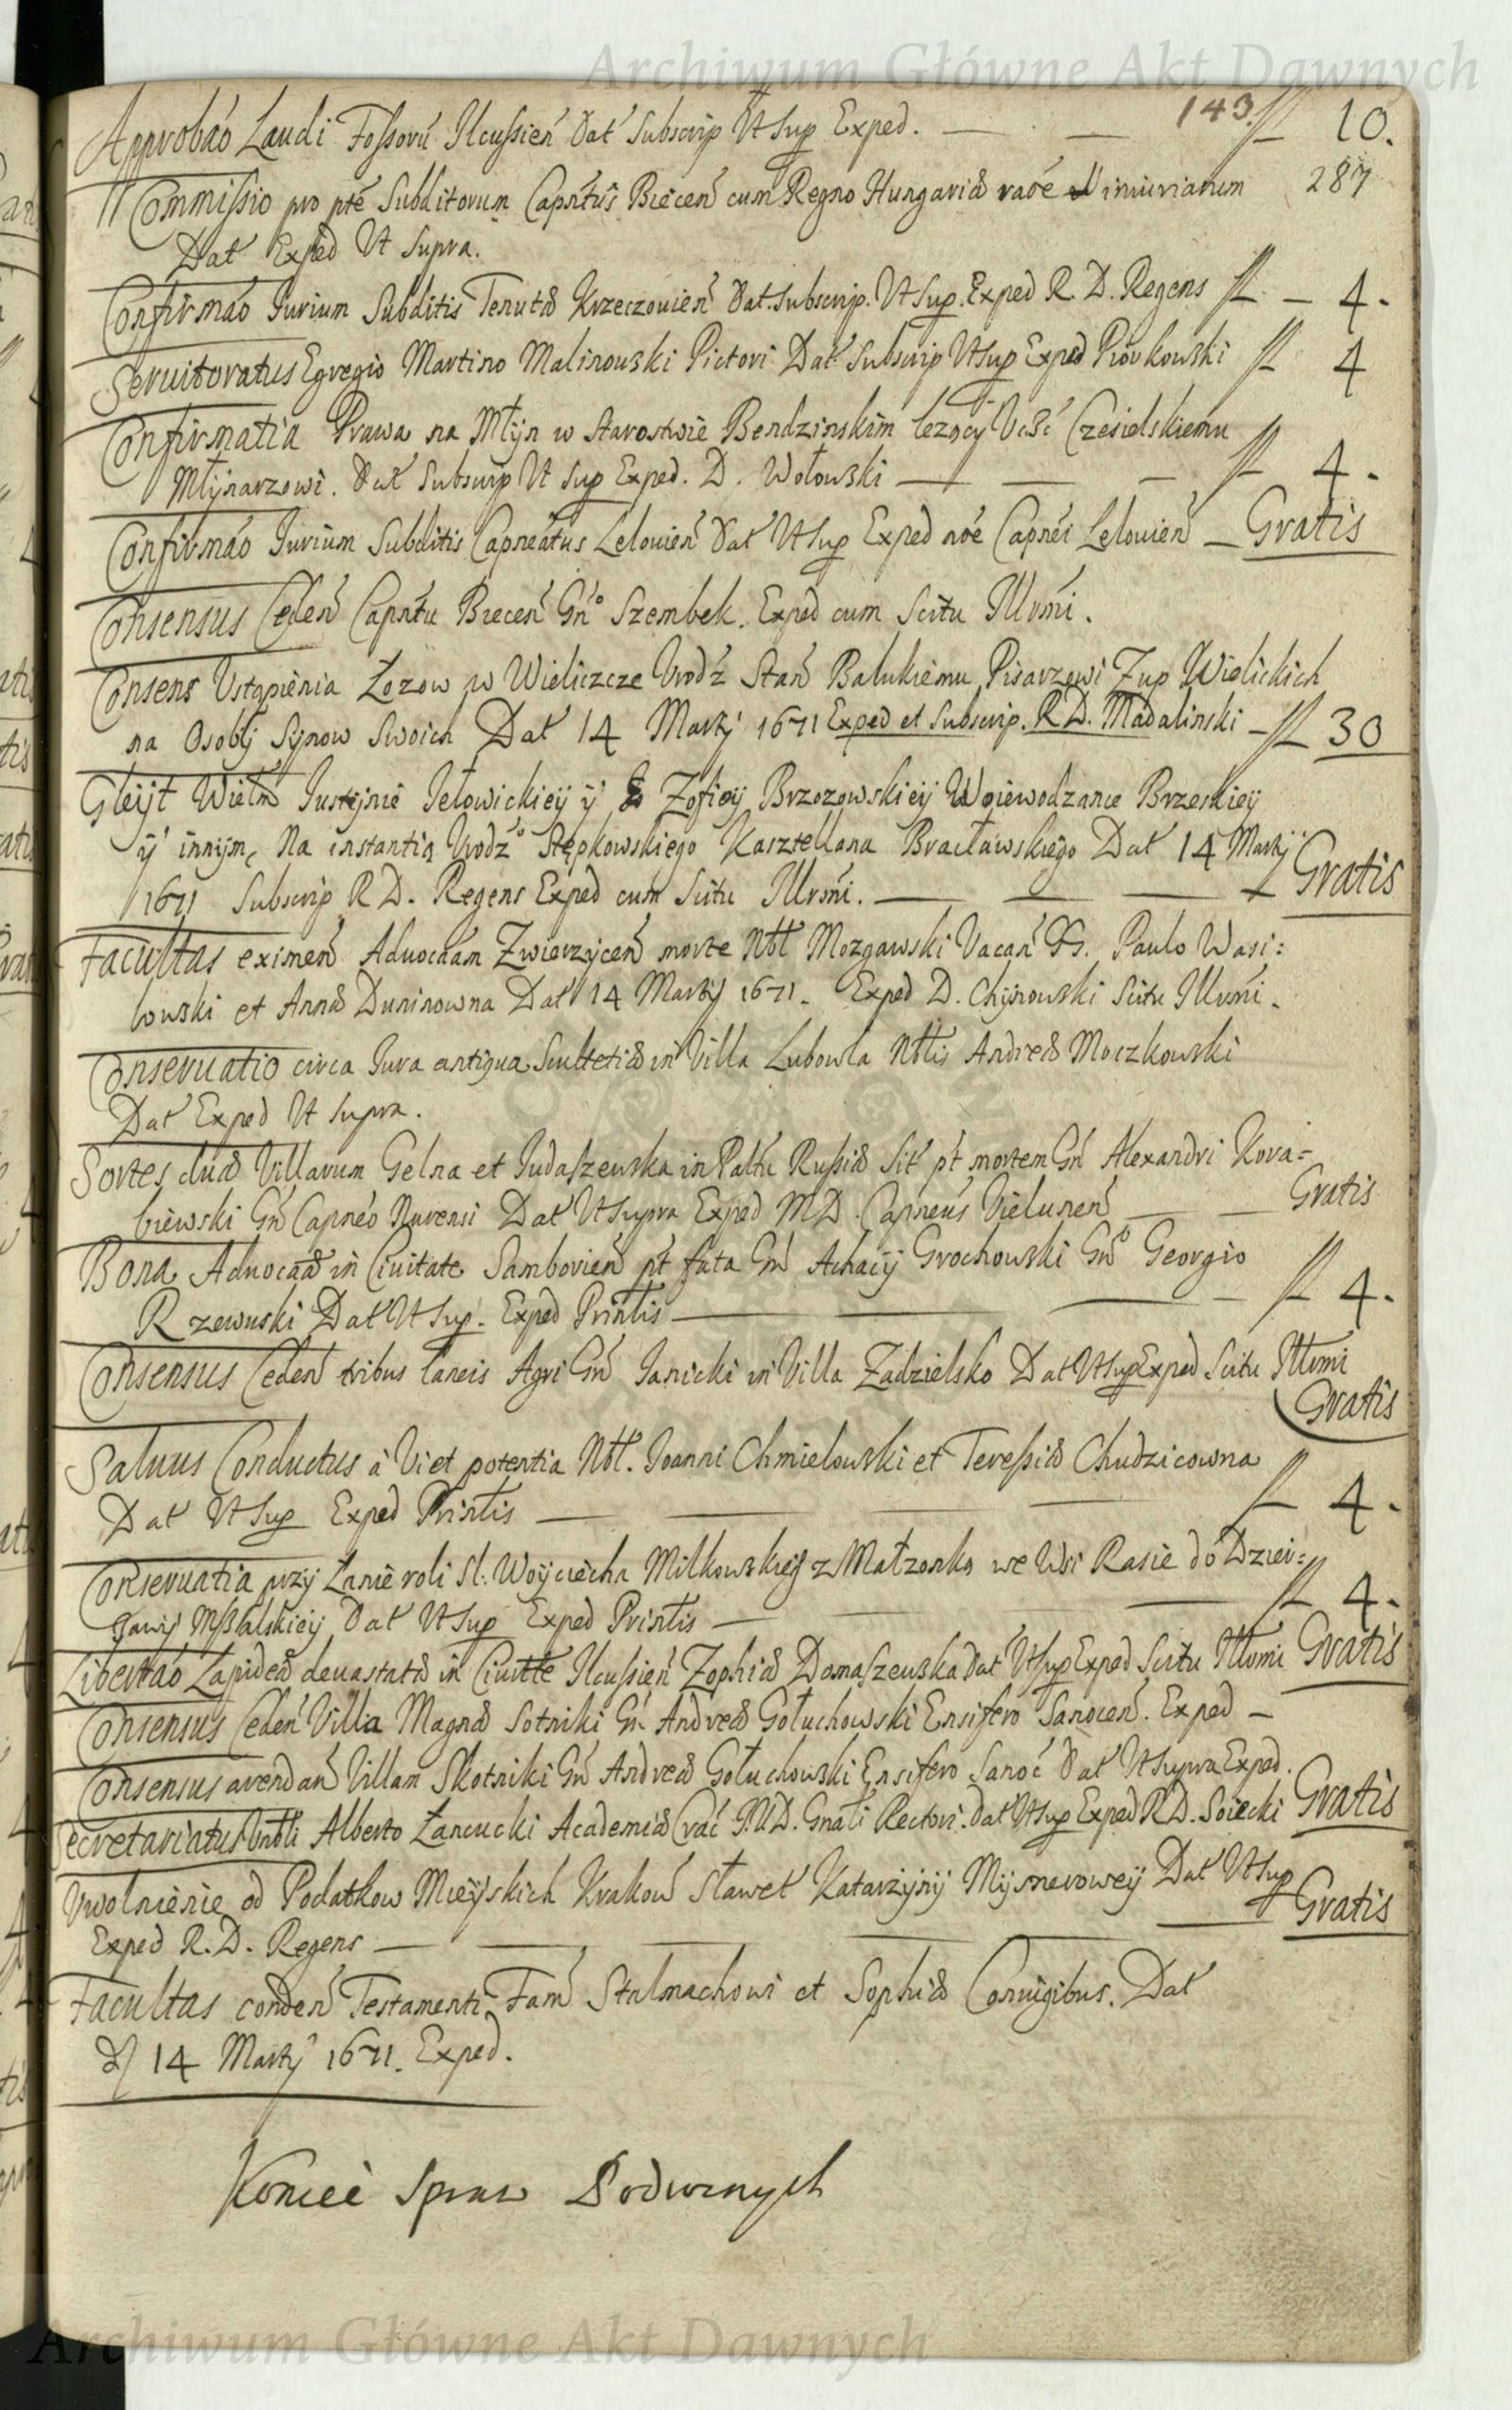 Archiwum Główne Akt Dawnych
143.
Approbáo Laudi Fossorú Ilcussień Dat Subscrip Vt Sup Exped. — — fl 10.
287
Commissio pro pté Subditorum Capntús Biecen cum Regno Hungariæ raóe iniuriarum
Dat Exped Vt Supra.
Confirmáo Iurium Subditis Tenutæ Krzeczouien Dat. Subscrip. Vt Sup. Exped R. D. Regens fl – 4.
Seruitoratus Egregio Martino Malinowski Pictori Dat Subscrip Vt Sup Exped Piorkowski fl 4
Confirmatia Prawa na Młyn w Starostwie Bendzinskim lezący Czesielskiemu
Młynarzowi. Dat Subscrip Vt Sup Exped. D. Wołowski — — – fl 4.
Confirmáo Iurium Subditis Capneatus Lelouien Dat Vt Sup Exped nóe Capnei Lelouien – Gratis
Consensus Ceden Capntu Biecen Gńo Szembek. Exped cum Scitu Illrmi.
Consens Vstąpienia Łozow w Wieliczcze Vrodź Stań Bałukiemu Pisarzewi Zup Wielickich
na Osoby Synow Swoich Dat 14 Martij 1671 Exped et Subscrip. R D. Madalinski – fl 30
Gleyt Wielm Iustynie Iełowickiey y Zofiey Brzozowskiey Woiewodzance Brzeskiey
y innym, Na instantią Vrodźo Stępkowskiego Kasztellana Bracławskiego Dat 14 Martij
1671 Subscrip R D. Regens Exped cum Scitu Illrmi. — — — Gratis
Facultas eximen Aduocáam Zwierzycen morte Nbl Mozgawski Vacań GG. Paulo Wasi:
lowski et Annæ Duninowna Dat 14 Martij 1671. Exped D. Chynowski Scitu Illrmi.
Conseruatio circa Iura antiqua Scultetiæ in Villa Lubowla Nblis Andreæ Moczkowski
Dat Exped Vt Supra.
Sortes duæ Villarum Gelna et Iudaszewska in Paltu Russiæ Sit pt mortem Gń Alexandri Kora=
biewski Gń Capneo Nurensi Dat Vt Supra Exped M D. Capneus Vielunen — — Gratis
Bona Aduocaáæ in Ciuitate Samborien pt fata Gń Achacij Grochowski Gńo Georgio
Rzewuski Dat Vt Sup. Exped Printis — — — – fl 4.
Consensus Ceden tribus laneis Agri Gń Ianicki in Villa Zadzielsko Dat Vt Sup Exped Scitu Illrmi
Gratis
Saluus Conductus á Vi et potentia Nbl. Ioanni Chmielowski et Teressiæ Chudzicowna
Dat Vt Sup Exped Printis — — — — fl 4.
Conseruatia przy Łanie roli Sl: Woyciecha Milkowskieg z Małzonką we Wsi Rasie do Dzier=
zawy Mszalskiey Dat Vt Sup Exped Printis — — — fl 4.
Libertáo Lapideæ deuastatæ in Ciuitte Ilcussien Zophiæ Domaszewska Dat Vt Sup Exped Scitu Illrmi Gratis
Consensus Ceden Villa Magnæ Sotniki Gń Andreæ Gołuchowski Ensifero Sanocen. Exped –
Consensus arendań Villam Skotniki Gń Andreæ Gołuchowski Ensifero Sanoc Dat Vt Supra Exped.
Secretariatus Alberto Łancucki Academiæ Crać I.U.D. Gnali Rectori. Dat Vt Sup Exped R D. Soiecki Gratis
Vwolnienie od Podatkow Mieyskich Krakow Sławet Katarzyny Mysnerowey Dat Vt Sup
Exped R. D. Regens — — — — — Gratis
Facultas conden Testamenti Fam Stalmachowi et Sophiæ Coniugibus. Dat
D 14 Martij 1671. Exped.
Koniec Spraw Podwornych
Archiwum Główne Akt Dawnych